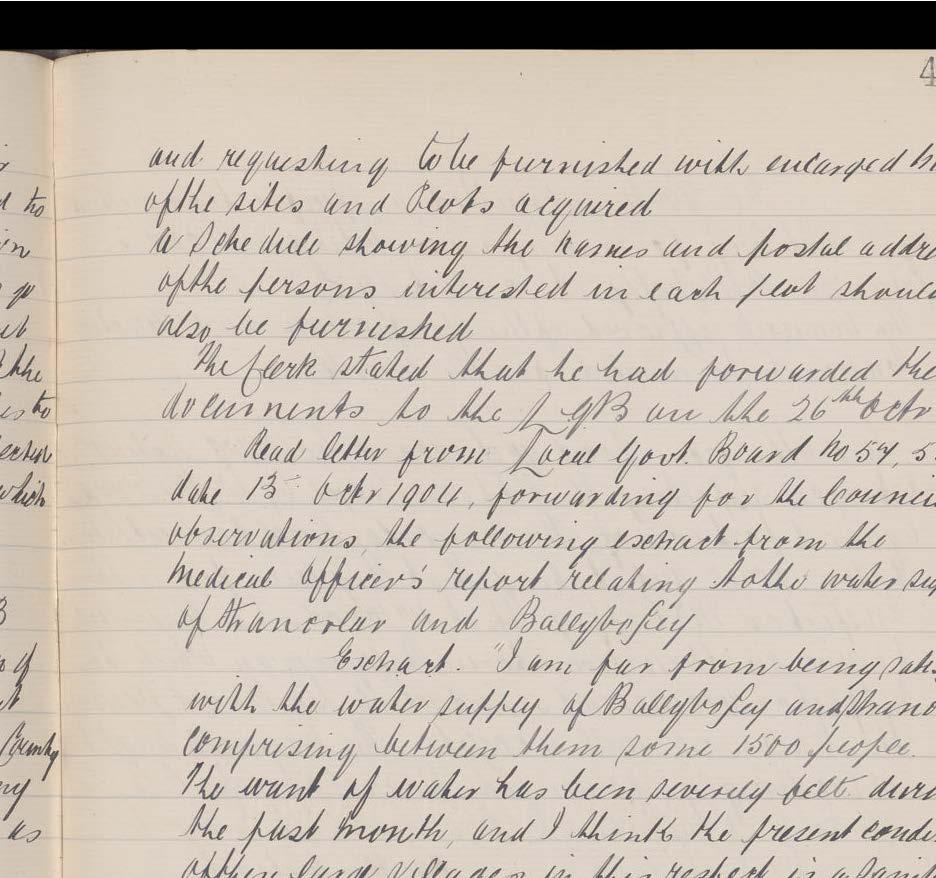 4
and requesting to be furnished with enlarged
of the sites and Plots acquired
A Schedule showing the names and postal addre
of the persons interested in each plot shoul
also be furnished
The Clerk stated that he had forwarded the
documents to the L.G.B on the 26th Octr
Read letter from Local Govt. Board No 54, 5
date 13 Octr 1904, forwarding for the Counci
observations, the following extract from the
Medical Officer's report relating to the water sup
of Stranorlar and Ballybofey
Extract. "I am far from being satis
with the water supply of Ballybofey and Strano
comprising between them some 1500 people.
The want of water has been severely felt duri
the past month, and I think the present condi
of these large villages in this respect is a
d to
the
which
County
as